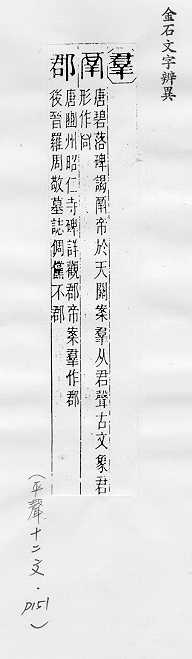 金石文字辨異
羣
唐碧落碑謁𠹛帝於天關案羣从君聲古文象君
形作𠹛
郡
唐豳州昭仁寺碑詳觀郡帝案羣作郡
後晉羅周敬墓誌倜儻不郡
（平聲十二文．p151）